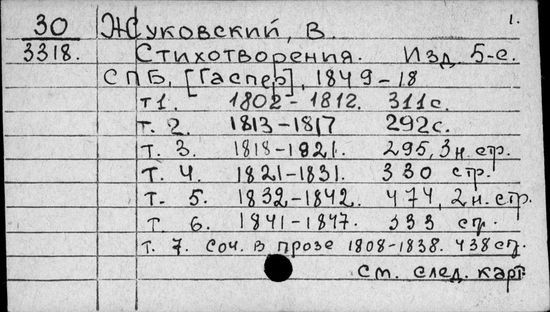 30 Жуковский, В. 1.
3318. Стихотворения. Изд. 5-е.
СПБ, [Гаспер], 1849-18
т1. 1802-1812. 311с.
т. 2. 1813-1817 292с.
т. 3. 1818-1921. 295, 3н. стр.
т. 4. 1821-1831. 330 стр.
т. 5. 1832-1842. 474, 2н. стр.
т. 6. 1841-1847. 333 стр.
т. 7. Соч. в прозе 1808-1838. 438 стр.
См. след. карт